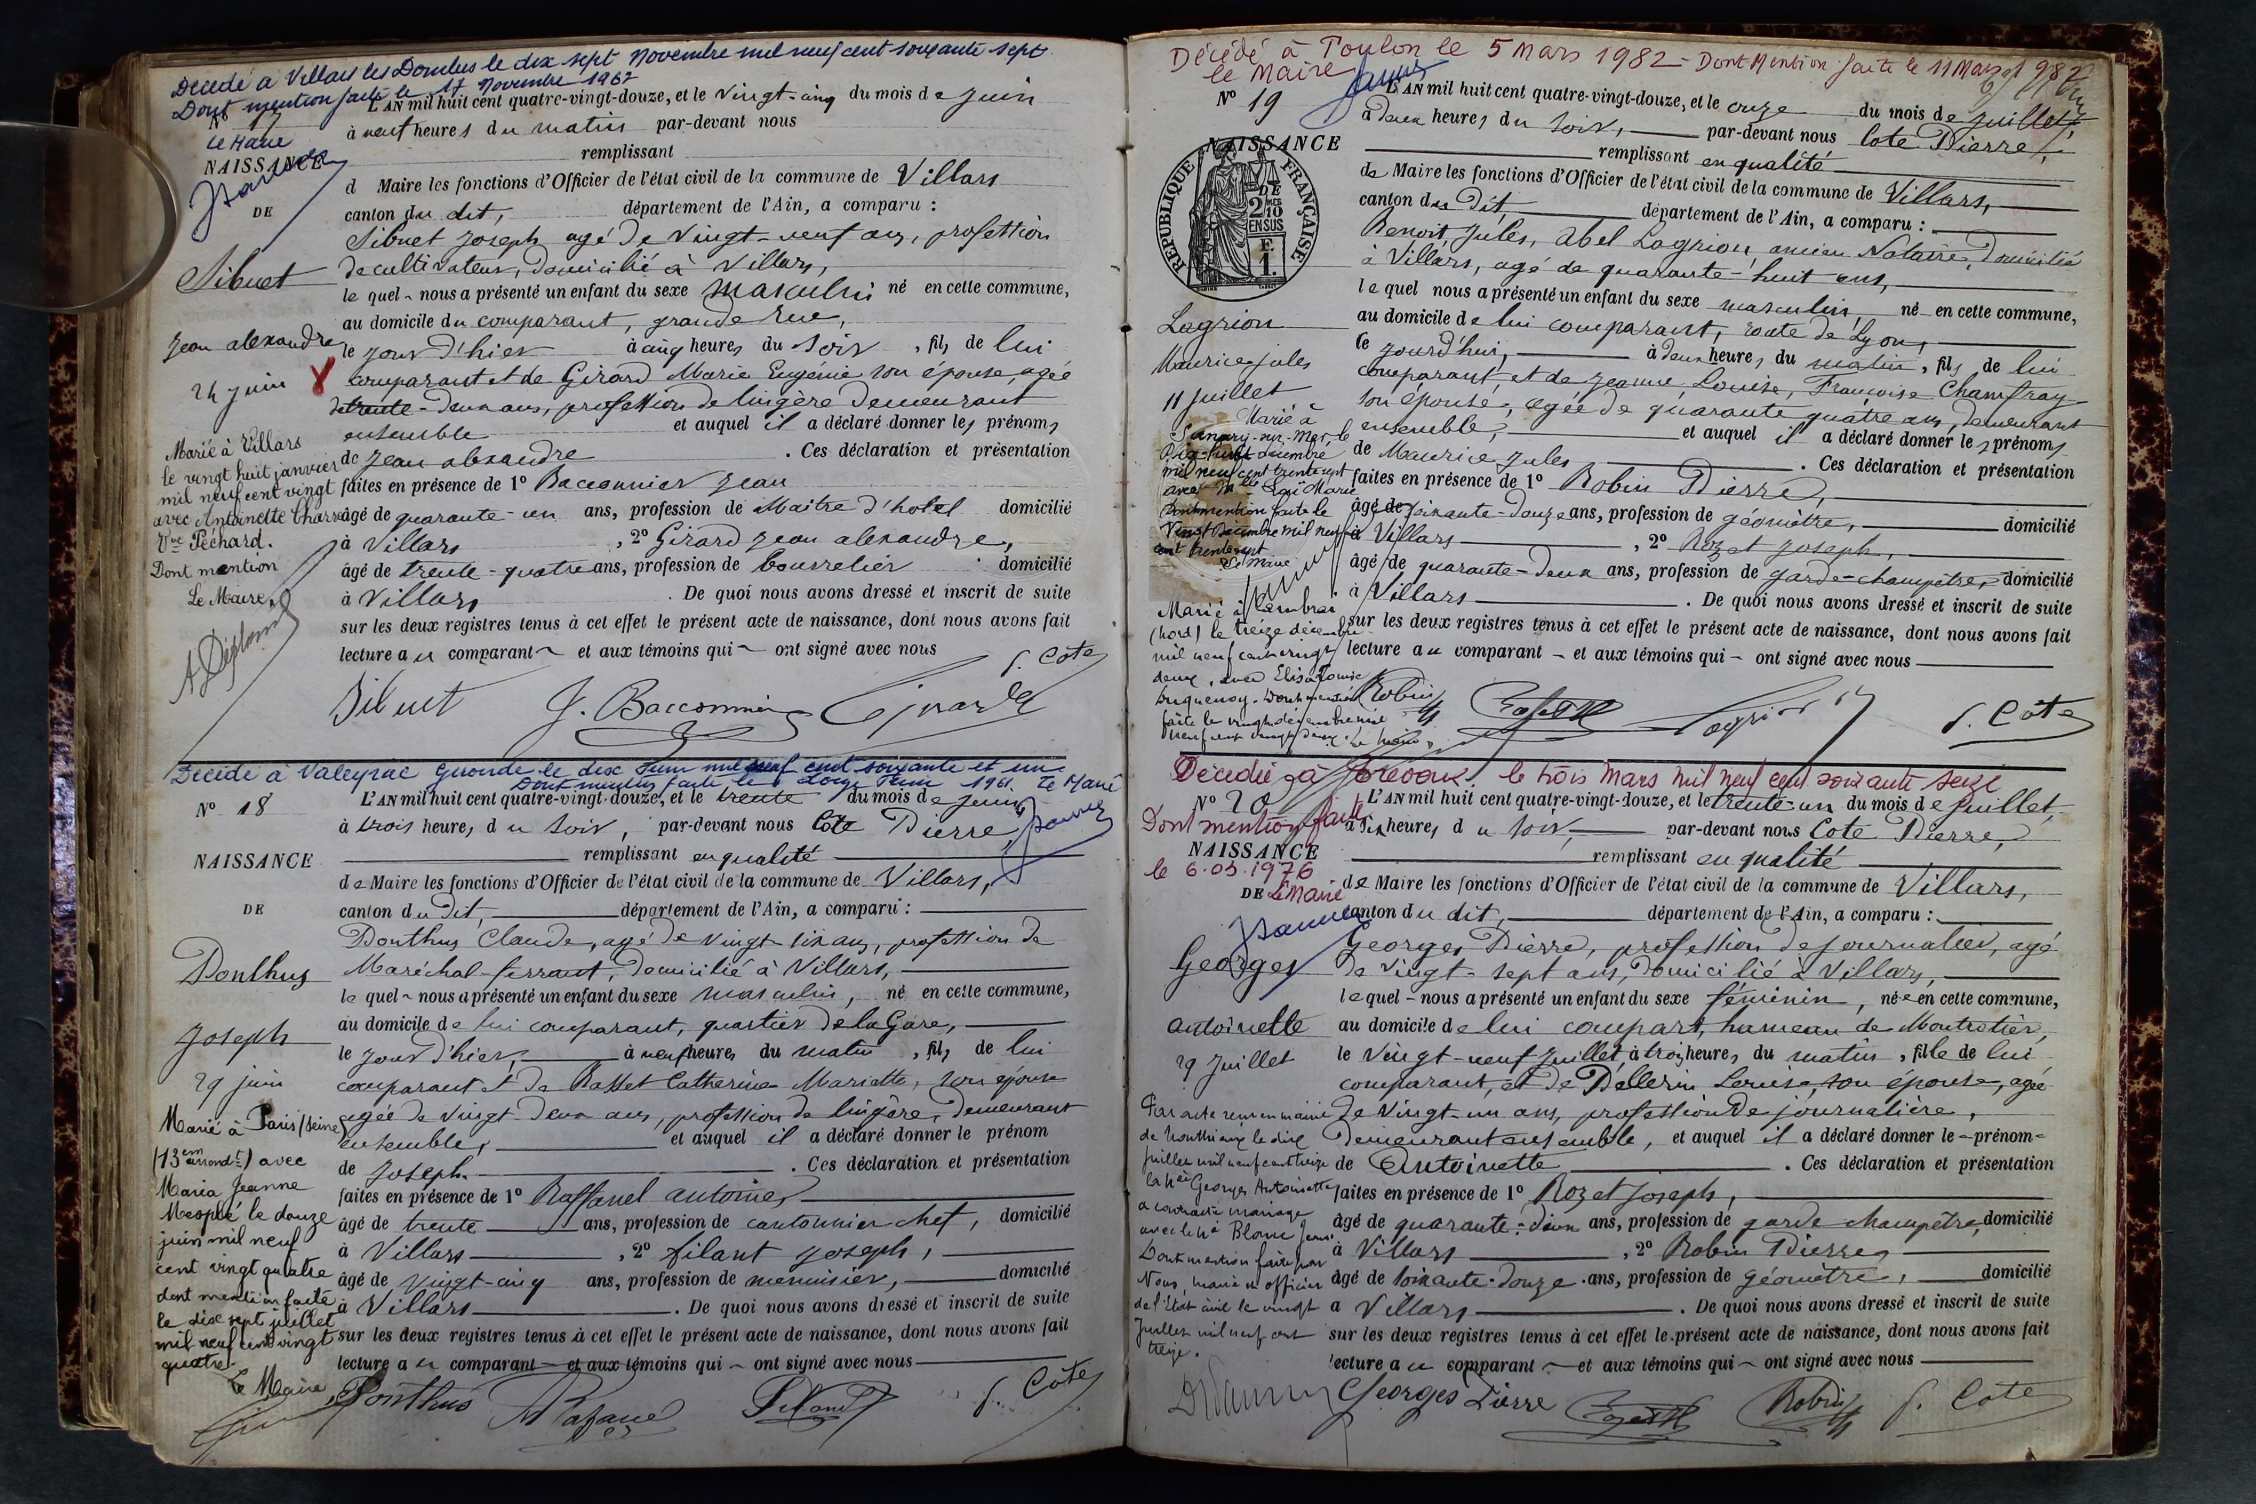 Décédé à Villars les Dombes le dix sept Novembre mil neuf cent soixante sept
Dont mention faite le 17 Novembre 1967
Le Maire
N° 17
NAISSANCE
DE
Sibuet
Jean alexandre
24 juin
Marié à Villars
le vingt huit janvier
mil neuf cent vingt
avec Antoinette
Vve Péchard.
Dont mention
Le Maire,
L'AN mil huit cent quatre-vingt-douze, et le vingt-cinq du mois de juin
à neuf heures du matin par-devant nous
remplissant
d Maire les fonctions d'Officier de l'état civil de la commune de Villars
canton du dit, département de l'Ain, a comparu :
Sibuet Joseph agé de vingt-neuf ans, profession
de cultivateur, domicilié à Villars,
le quel nous a présenté un enfant du sexe masculin né en cette commune,
au domicile du comparant, grande rue,
le jour d'hier à cinq heures du soir, fils de lui
comparant et de Girard Marie Eugénie son épouse, agée
de trente-deux ans, profession de lingère demeurant
ensemble et auquel il a déclaré donner les prénoms
de Jean alexandre . Ces déclaration et présentation
faites en présence de 1° Bacconnier Jean
âgé de quarante-un ans, profession de Maitre d'hotel domicilié
à Villars , 2° Girard Jean alexandre,
âgé de trente-quatre ans, profession de bourrelier domicilié
à Villars . De quoi nous avons dressé et inscrit de suite
sur les deux registres tenus à cet effet le présent acte de naissance, dont nous avons fait
lecture au comparant et aux témoins qui ont signé avec nous
Sibuet J. Bacconnier Girard P. Cote
Décédé à Valeyrac Gironde le dix Juin mil neuf cent soixante et un
Dont mention faite le douze Juin 1961. Le Maire
N° 18
NAISSANCE
DE
Ponthus
Joseph
29 juin
Marié à Paris (Seine
(13em arrondt) avec
Maria Jeanne
Mesplé le douze
juin mil neuf
cent vingt quatre
dont mention faite
le dix sept juillet
mil neuf cent vingt
quatre.
Le Maire
L'AN mil huit cent quatre-vingt-douze, et le trente du mois de juin
à trois heures du soir, par-devant nous Cote Pierre,
remplissant en qualité
de Maire les fonctions d'Officier de l'état civil de la commune de Villars,
canton du Dit, département de l'Ain, a comparu :
Ponthus Claude, agé de vingt-six ans, profession de
Maréchal-ferrant, domicilié à Villars,
le quel nous a présenté un enfant du sexe masculin, né en cette commune,
au domicile de lui comparant, quartier de la Gare,
le jour d'hier, à neuf heures du matin, fils de lui
comparant et de Basset Catherine Mariette, son épouse
agée de vingt deux ans, profession de lingère, demeurant
ensemble, et auquel il a déclaré donner le prénom
de Joseph. . Ces déclaration et présentation
faites en présence de 1° Raffanel antoine,
âgé de trente ans, profession de cantonnier chef, domicilié
à Villars , 2° filant Joseph,
âgé de vingt-cinq ans, profession de menuisier, domicilié
à Villars . De quoi nous avons dressé et inscrit de suite
sur les deux registres tenus à cet effet le présent acte de naissance, dont nous avons fait
lecture au comparant et aux témoins qui ont signé avec nous
Ponthus P. Cote
Décédé à Toulon le 5 Mars 1982 - Dont Mention faite le 11 Mars 1982
le Maire
N° 19
NAISSANCE
RÉPUBLIQUE FRANÇAISE
DE
2/10 EN SUS
Lagrion
Maurice Jules
11 juillet
Marié à
Sanary-sur-Mer, le
Dix-huit décembre
mil neuf cent trente sept
Dont mention faite le
Vingt Décembre mil neuf
cent trente sept
Le Maire
Marié à Cambrai
(nord) le treize décembre
mil neuf cent vingt
deux, avec Elisa Louise
L'AN mil huit cent quatre-vingt-douze, et le onze du mois de juillet
à deux heures du soir, par-devant nous Cote Pierre,
remplissant en qualité
de Maire les fonctions d'Officier de l'état civil de la commune de Villars,
canton du Dit, département de l'Ain, a comparu :
Benoit, Jules, Abel Lagrion, ancien Notaire, Domicilié
à Villars, agé de quarante-huit ans,
le quel nous a présenté un enfant du sexe masculin, né en cette commune,
au domicile de lui comparant, route de Lyon,
le jourd'hui, à deux heures du matin, fils de lui
comparant, et de Jeanne, Louise, Françoise Chamfray
son épouse, agée de quarante quatre ans, demeurant
ensemble, et auquel il a déclaré donner les prénoms
de Maurice Jules . Ces déclaration et présentation
faites en présence de 1° Robin Pierre,
âgé de soixante-douze ans, profession de géomètre, domicilié
à Villars , 2° Rozet Joseph,
âgé de quarante-deux ans, profession de garde-champêtre, domicilié
à Villars . De quoi nous avons dressé et inscrit de suite
sur les deux registres tenus à cet effet le présent acte de naissance, dont nous avons fait
lecture au comparant et aux témoins qui ont signé avec nous
Robin Lagrion P. Cote
Décédée à le trois Mars mil neuf cent soixante seize
Dont mention faite
le 6.03.1976
Le Maire
N° 20
NAISSANCE
DE
Georges
antoinette
29 Juillet
Par acte reçu en mairie
juillet mil neuf cent treize
la née Georges Antoinette
a contracté mariage
Dont mention faite par
Nous, maire officier
de l'Etat civil le vingt
Juillet mil neuf cent
treize.
L'AN mil huit cent quatre-vingt-douze, et le trente-un du mois de juillet,
à six heures du soir, par-devant nous Cote Pierre,
remplissant en qualité
de Maire les fonctions d'Officier de l'état civil de la commune de Villars,
canton du dit, département de l'Ain, a comparu :
Georges Pierre, profession de journalier, agé
de vingt-sept ans, domicilié à Villars,
lequel nous a présenté un enfant du sexe féminin, née en cette commune,
au domicile de lui compart, hameau de Montrotier,
le vingt-neuf juillet, à trois heures du matin, fille de lui
comparant, et de Pellerin Louise, son épouse, agée
de vingt-un ans, profession de journalière,
demeurant ensemble, et auquel il a déclaré donner le prénom
de Antoinette . Ces déclaration et présentation
faites en présence de 1° Rozet Joseph,
âgé de quarante-deux ans, profession de garde champêtre, domicilié
à Villars , 2° Robin Pierre,
âgé de soixante-douze ans, profession de géomètre, domicilié
a Villars . De quoi nous avons dressé et inscrit de suite
sur les deux registres tenus à cet effet le présent acte de naissance, dont nous avons fait
lecture au comparant et aux témoins qui ont signé avec nous
Georges Pierre Robin P. Cote